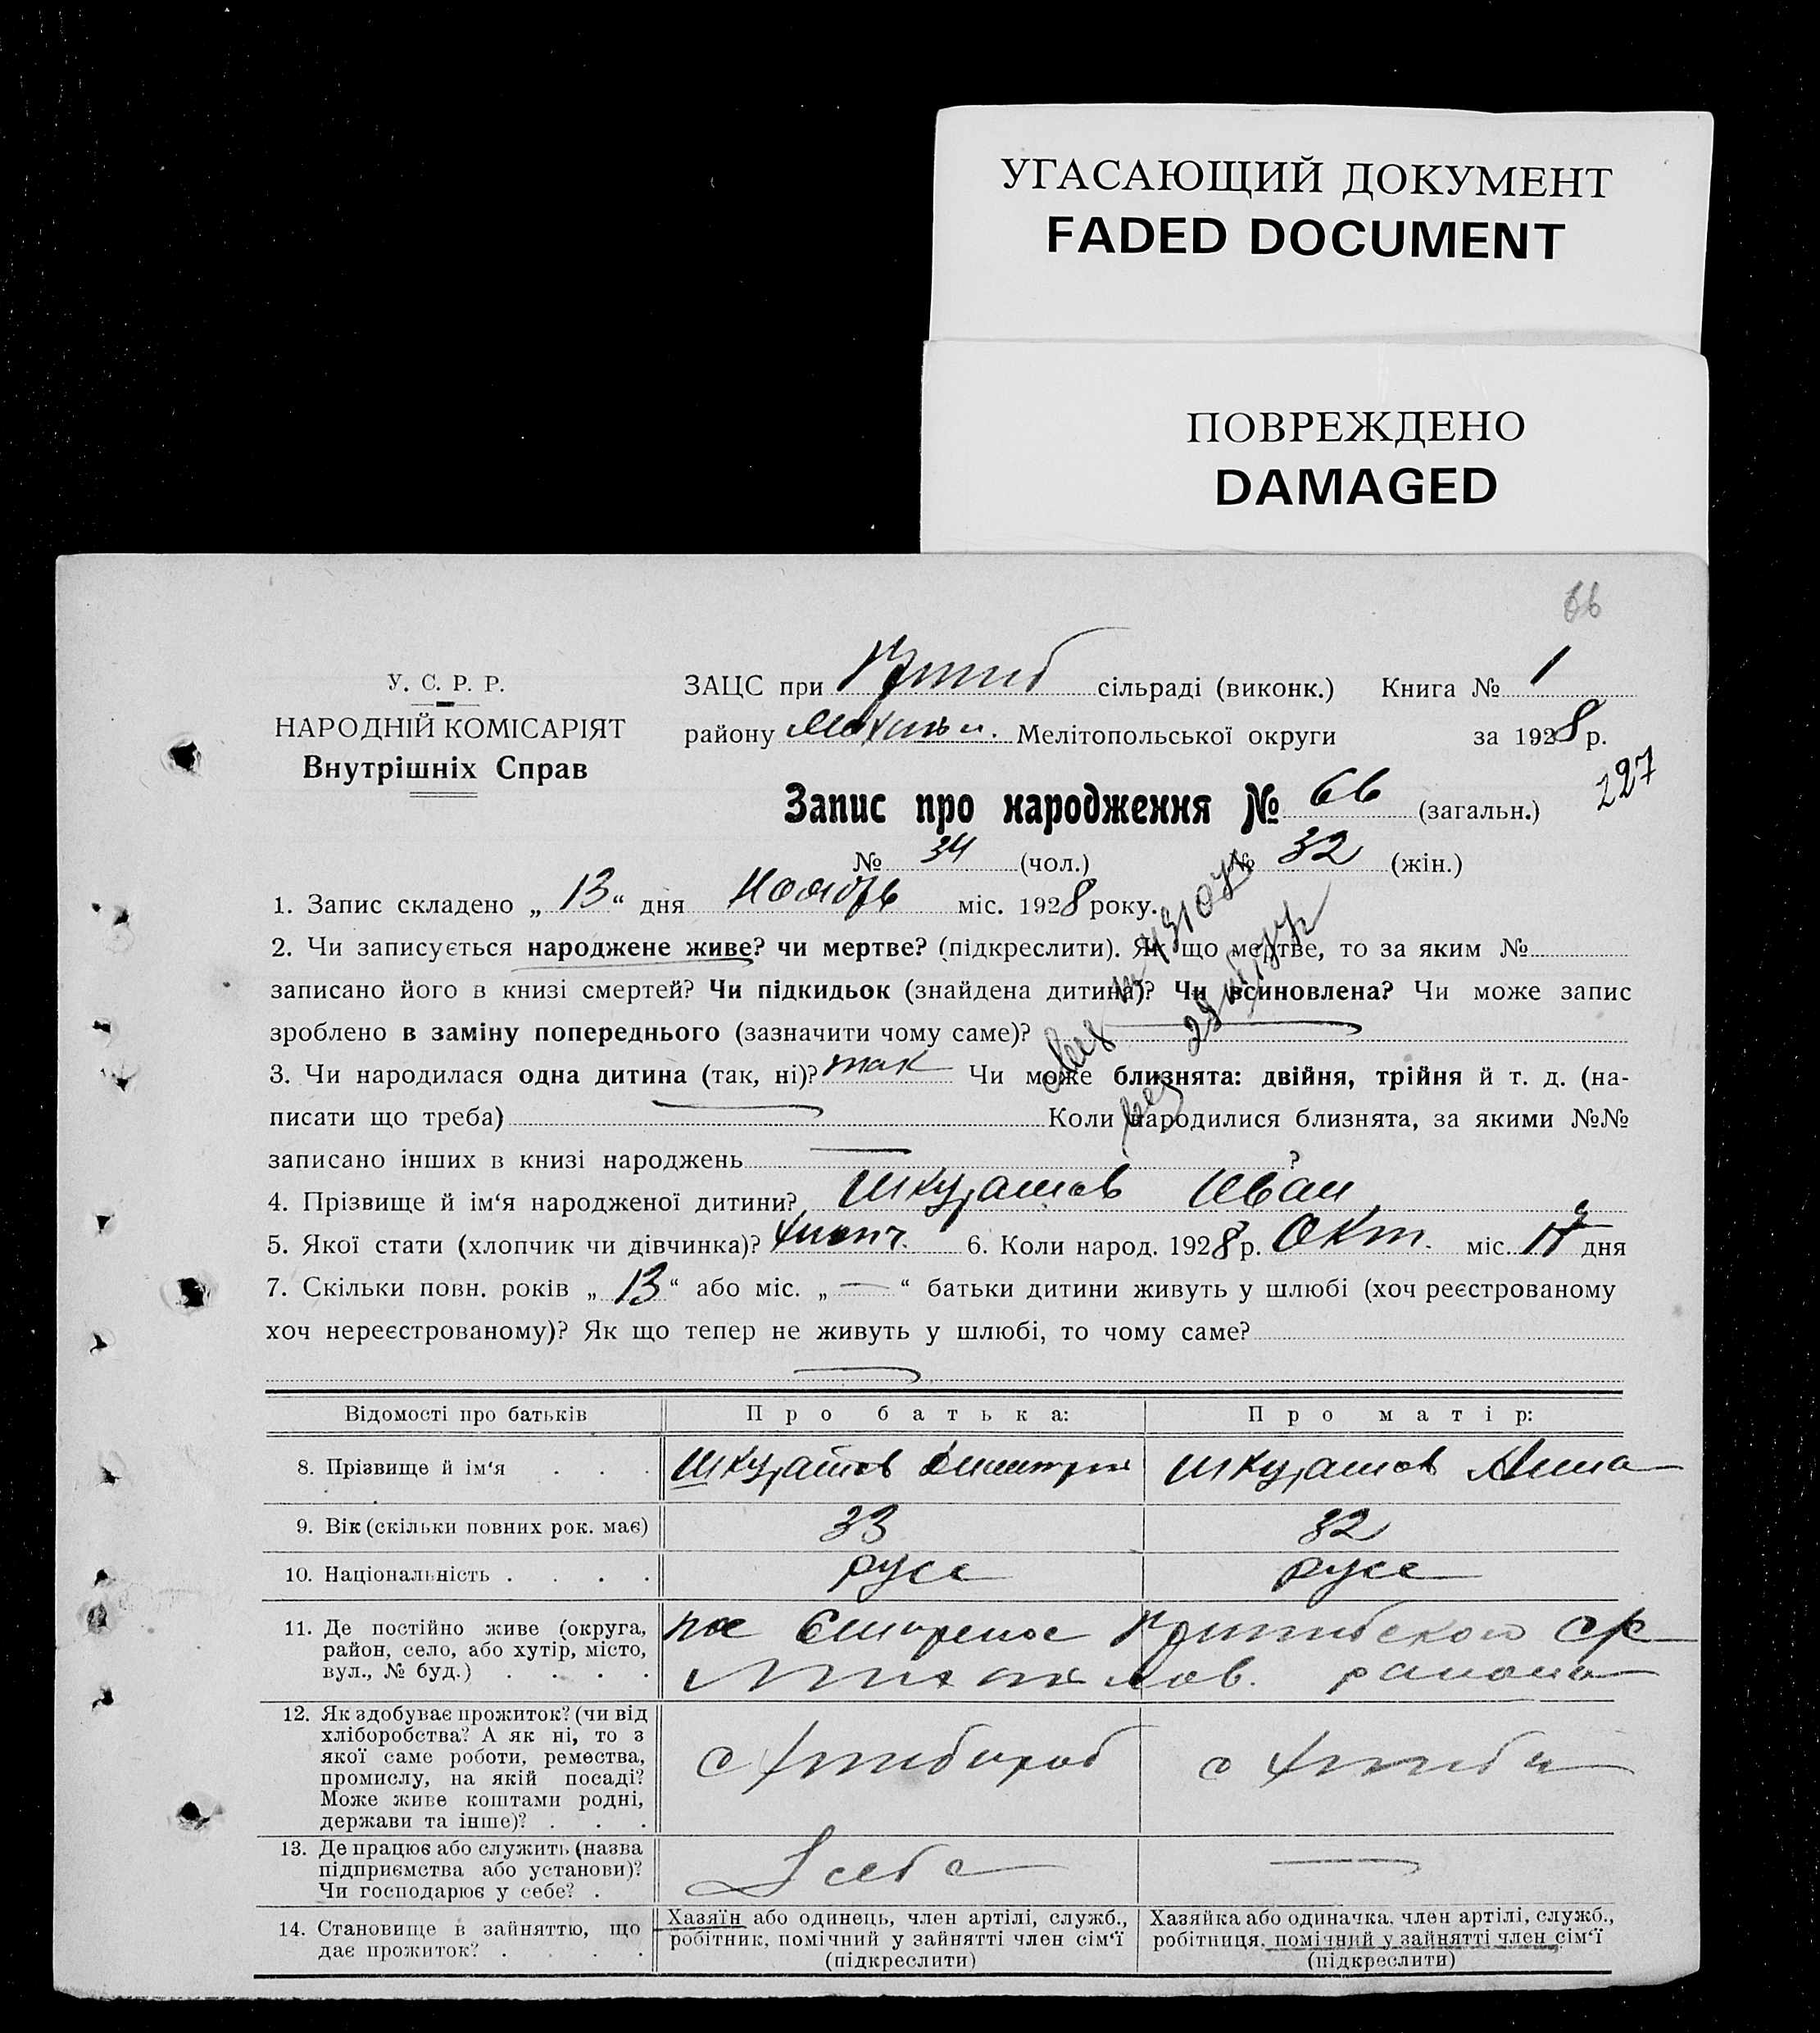 УГАСАЮЩИЙ ДОКУМЕНТ
FADED DOCUMENT
ПОВРЕЖДЕНО
DAMAGED
66
У. С. Р. Р.
НАРОДНІЙ КОМІСАРІЯТ
Внутрішніх Справ
ЗАЦС при сільраді (виконк.) Книга № 1
району Мелітопольської округи за 1928 р.
227
Запис про народження № 66 (загальн.)
№ 34 (чол.) № 32 (жін.)
1. Запис складено „ 13 “ дня Ноябрь міс. 1928 року.
2. Чи записується народжене живе? чи мертве? (підкреслити). Як що мертве, то за яким №
записано його в книзі смертей? Чи підкидьок (знайдена дитина)? Чи всиновлена? Чи може запис
зроблено в заміну попереднього (зазначити чому саме)?
3. Чи народилася одна дитина (так, ні)? так Чи може близнята: двійня, трійня й т. д. (на-
писати що треба) Коли народилися близнята, за якими №№
записано інших в книзі народжень ?
4. Прізвище й ім‘я народженої дитини? Шкуратов Иван
5. Якої стати (хлопчик чи дівчинка)? хлопч. 6. Коли народ. 1928 р. Окт. міс. дня
7. Скільки повн. років „ 13 “ або міс. „ — “ батьки дитини живуть у шлюбі (хоч реєстрованому
хоч нереєстрованому)? Як що тепер не живуть у шлюбі, то чому саме?
Відомості про батьків Про батька: Про матір:
8. Прізвище й ім‘я . . . Шкуратов Димитрий Шкуратов Анна
9. Вік (скільки повних рок. має) 33 32
10. Національність . . . . русс русс
11. Де постійно живе (округа,
район, село, або хутір, місто,
вул., № буд.) . . . .
пос с/р
Михайлов. района
12. Як здобуває прожиток? (чи від
хліборобства? А як ні, то з
якої саме роботи, ремества,
промислу, на якій посаді?
Може живе коштами родні,
держави та інше)? . . .
с хлибороб с хлиби
13. Де працює або служить (назва
підприємства або установи)?
Чи господарює у себе? .
У себе —
14. Становище в зайняттю, що
дає прожиток? . . . .
Хазяїн або одинець, член артілі, служб.,
робітник, помічний у зайнятті член сім‘ї
(підкреслити)
Хазяйка або одиначка, член артілі, служб.,
робітниця, помічний у зайнятті член сім‘ї
(підкреслити)